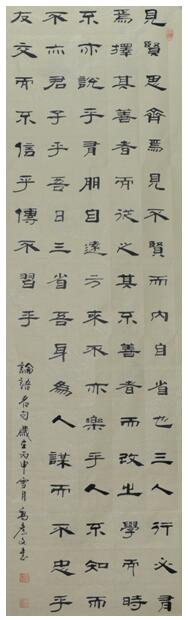 見賢思齊焉見不賢而內自省也三人行必有
焉擇其善者而從之其不善者而改之學而時
不亦說乎有朋自遠方來不亦樂乎人不知而
不亦君子乎吾日三省吾身為人謀而不忠乎
友交而不信乎傳不習乎
論語名句歲在丙申雪月